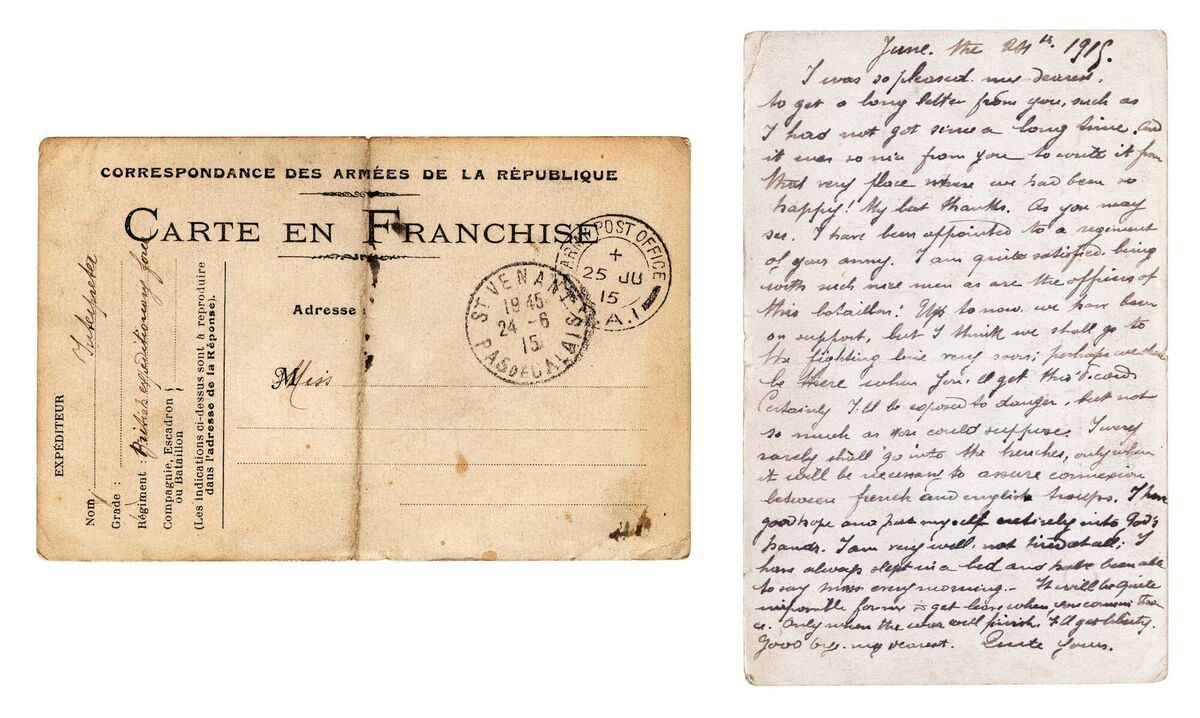 CORRESPONDANCE DES ARMÉES DE LA RÉPUBLIQUE
CARTE EN FRANCHISE
ARMY POST OFFICE
+
25 JU
15
A.1
ST VENANT
19 45
24 - 6
15
PAS DE CALAIS
Adresse :
Miss
EXPÉDITEUR
Nom Interpreter
Grade :
Régiment : British expeditionary force
Compagnie, Escadron
ou Bataillon
(Les indications ci-dessus sont à reproduire
dans l'adresse de la Réponse).
June. the 24th. 1915.
I was so pleased. my dearest,
to get a long letter from you, such as
I had not got since a long time. And
it was so nice from you to write it from
that very place where we had been so
happy! My best thanks. As you may
see. I have been appointed to a regiment
of your army. I am quite satisfied being
with such nice men as are the officers of
this bataillon. Up to now, we have been
on support, but I think we shall go to
the fighting line very soon; perhaps we
be there when you'll get this card
Certainly I'll be exposed to danger, but not
so much as you could suppose. I very
rarely shall go into the trenches, only when
it will be necessary to assure connexion
between french and english troups. I have
good hope and put myself entirely into God's
hands. I am very well. not tired at all; I
have always slept in a bed and have been able
to say mass every morning. - It will be quite
impossible for me to get leave when
Only when the war will finish, I'll get liberty.
Good bye. my dearest. Quite yours.